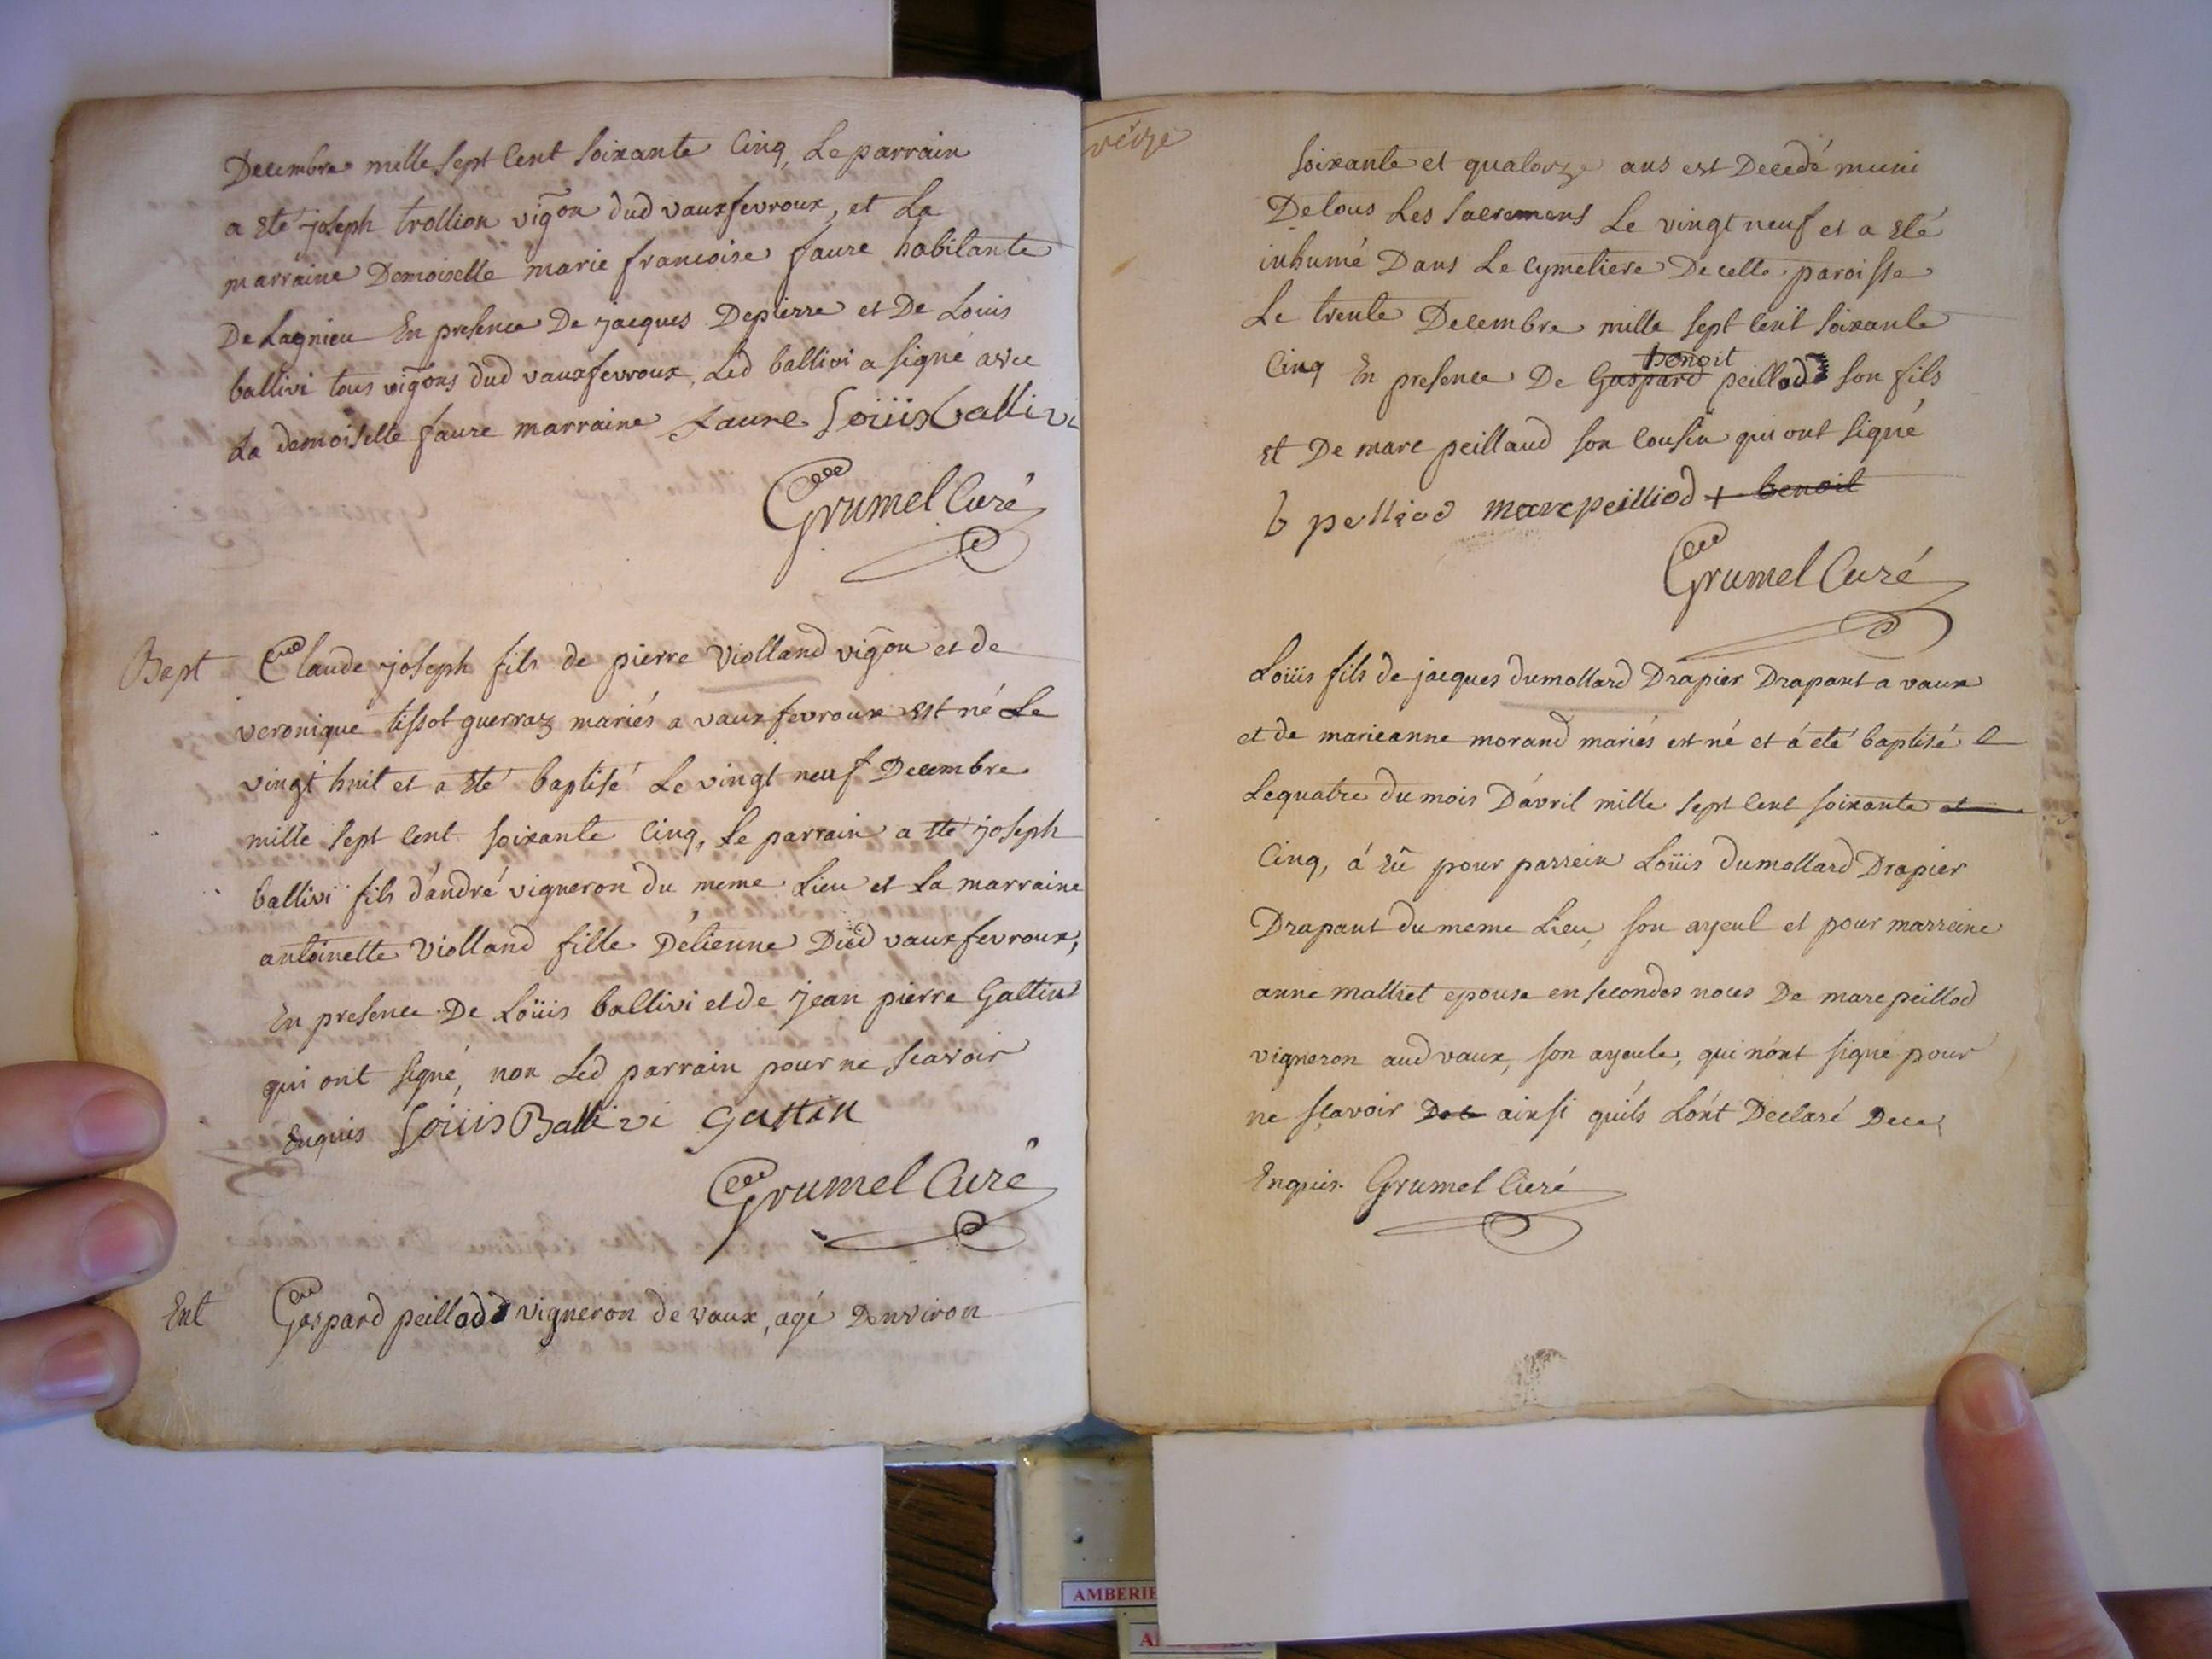 Decembre mille sept cent soixante cinq, Le parrain
a eté joseph trollion vigõn dud vauxfevroux, et La
marraine Demoiselle marie francoise faure habitante
De Lagnieu En presence De jacques Depierre et De Louis
ballivi tous vigõns dud vauxfevroux, Led ballivi a signé avec
La demoiselle faure marraine faure Loüis Ballivi
Grumel Curé
Bapt Claude joseph fils de pierre Violland vigõn et de
veronique tissot guerraz mariés a vaux fevroux est né Le
vingt huit et a eté baptisé Le vingt neuf Decembre
mille sept cent soixante cinq, Le parrain a eté joseph
ballivi fils d'andré vigneron du meme Lieu et La marraine
antoinette Violland fille D'etienne Dud vaux fevroux,
En presence De Loüis ballivi et de jean pierre Gattin
qui ont signé, non Led parrain pour ne scavoir
Enquis Loüis Ballivi Gattin
Grumel Curé
Ent Gaspard peillod vigneron de vaux, agé Denviron
treize
soixante et quatorze ans est Decedé muni
De tous Les sacremens Le vingt neuf et a eté
inhumé Dans Le cymetiere De cette paroisse
Le trente Decembre mille sept cent soixante
benoit
cinq En presence De Gaspard peillod son fils,
et De marc peillaud son cousin qui ont signé
b peilliod marc peilliod + benoit
Grumel Curé
Loüis fils de jacques dumollard Drapier Drapant a vaux
et de marieanne morand mariés est né et á eté baptisé
Le quatre du mois D'avril mille sept cent soixante et
cinq, á eû pour parrein Loüis dumollard Drapier
Drapant du meme Lieu, son ayeul et pour marreine
anne mallret epouse en secondes noces De marc peillod
vigneron aud vaux, son ayeule, qui n'ont signé pour
ne sçavoir ainsi qu'ils L'ont Declaré De ce
Enquis Grumel Curé
AMBERIE